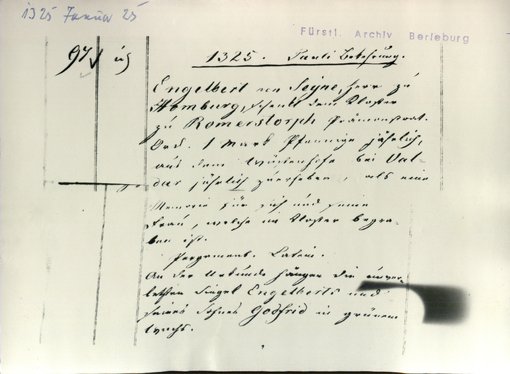 1325 Januar 25
Fürstl. Archiv Berleburg
97
1325. Pauli Bekehrung.
Engelbert von Seyne, Herr zu
Homburg, schenkt dem Kloster
zu Romerstorph Prämonstrat.
Ord. 1 Mark Pfennige jährlich,
aus dem Wüstenhofe bei Val-
dar jährlich zu erheben, als eine
Memorie für sich und seine
Frau, welche im Kloster begra-
ben ist.
Pergament. Latein.
An der Urkunde hängen die unver-
letzten Siegel Engelberts und
seines Sohnes Godfrid in grünem
Wachs.